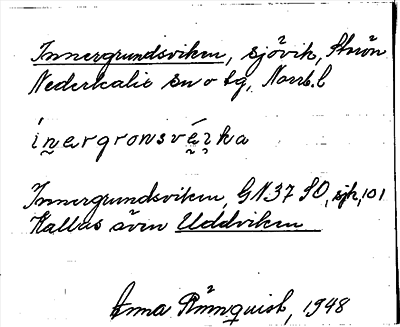 Innergrundsviken, sjövik, Storön
Nederkalix sn o tg, Norrb. l
Innergrundsviken, GN37 SO, sjk, 101
Kallas även Uddviken
Anna Rönnquist, 1948